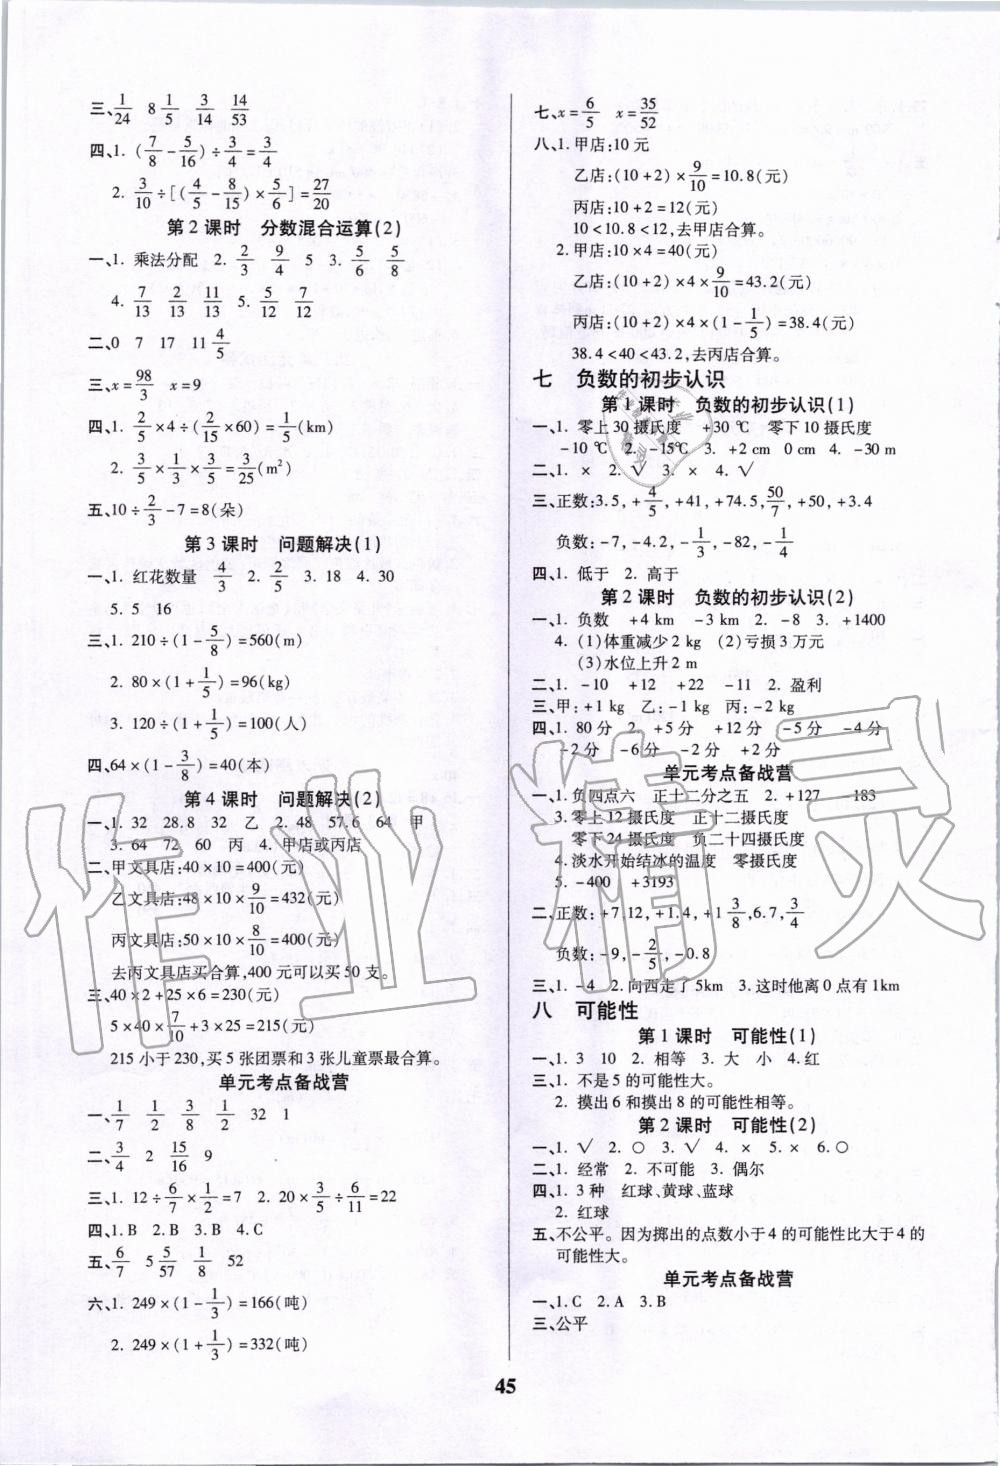 三、1/24 8 1/5 3/14 14/53
四、1. (7/8-5/16)÷3/4=3/4
2. 3/10÷[(4/5-8/15)×5/6]=27/20
第2课时 分数混合运算(2)
一、1. 乘法分配 2. 2/3 9/4 5 3. 5/6 5/8
4. 7/13 2/13 11/13 5. 5/12 7/12
二、0 7 17 11 4/5
三、x=98/3 x=9
四、1. 2/5×4÷(2/15×60)=1/5(km)
2. 3/5×1/5×3/5=3/25(m²)
五、10÷2/3-7=8(朵)
第3课时 问题解决(1)
一、1. 红花数量 4/3 2. 2/5 3. 18 4. 30
5. 5 16
三、1. 210÷(1-5/8)=560(m)
2. 80×(1+1/5)=96(kg)
3. 120÷(1+1/5)=100(人)
四、64×(1-3/8)=40(本)
第4课时 问题解决(2)
一、1. 32 28.8 32 乙 2. 48 57.6 64 甲
3. 64 72 60 丙 4. 甲店或丙店
二、甲文具店:40×10=400(元)
乙文具店:48×10×9/10=432(元)
丙文具店:50×10×8/10=400(元)
去丙文具店买合算,400元可以买50支。
三、40×2+25×6=230(元)
5×40×7/10+3×25=215(元)
215小于230,买5张团票和3张儿童票最合算。
单元考点备战营
一、1/7 1/2 3/8 1/2 32 1
二、3/4 2 15/16 9
三、1. 12÷6/7×1/2=7 2. 20×3/5÷6/11=22
四、1. B 2. B 3. B 4. C
五、6/7 5 5/57 1/8 52
六、1. 249×(1-1/3)=166(吨)
2. 249×(1+1/3)=332(吨)
七、x=6/5 x=35/52
八、1. 甲店:10元
乙店:(10+2)×9/10=10.8(元)
丙店:10+2=12(元)
10<10.8<12,去甲店合算。
2. 甲店:10×4=40(元)
乙店:(10+2)×4×9/10=43.2(元)
丙店:(10+2)×4×(1-1/5)=38.4(元)
38.4<40<43.2,去丙店合算。
七 负数的初步认识
第1课时 负数的初步认识(1)
一、1. 零上30摄氏度 +30℃ 零下10摄氏度
-10℃ 2. -15℃ 3. +2cm 0cm 4. -30m
二、1. × 2. √ 3. × 4. √
三、正数:3.5,+4/5,+41,+74.5,50/7,+50,+3.4
负数:-7,-4.2,-1/3,-82,-1/4
四、1. 低于 2. 高于
第2课时 负数的初步认识(2)
一、1. 负数 +4km -3km 2. -8 3. +1400
4. (1)体重减少2kg (2)亏损3万元
(3)水位上升2m
二、1. -10 +12 +22 -11 2. 盈利
三、甲:+1kg 乙:-1kg 丙:-2kg
四、1. 80分 2. +5分 +12分 -5分 -4分
-2分 -6分 -2分 +2分
单元考点备战营
一、1. 负四点六 正十二分之五 2. +127 -183
3. 零上12摄氏度 正十二摄氏度
零下24摄氏度 负二十四摄氏度
4. 淡水开始结冰的温度 零摄氏度
5. -400 +3193
二、正数:+7.12,+1.4,+1 3/8,6.7,3/4
负数:-9,-2/5,-0.8
三、1. -4 2. 向西走了5km 3. 这时他离0点有1km
八 可能性
第1课时 可能性(1)
一、1. 3 10 2. 相等 3. 大 小 4. 红
三、1. 不是5的可能性大。
2. 摸出6和摸出8的可能性相等。
第2课时 可能性(2)
一、1. √ 2. ○ 3. √ 4. × 5. × 6. ○
二、1. 经常 2. 不可能 3. 偶尔
四、1. 3种 红球、黄球、蓝球
2. 红球
五、不公平。因为掷出的点数小于4的可能性比大于4的
可能性大。
单元考点备战营
一、1. C 2. A 3. B
三、公平
45
作业精灵